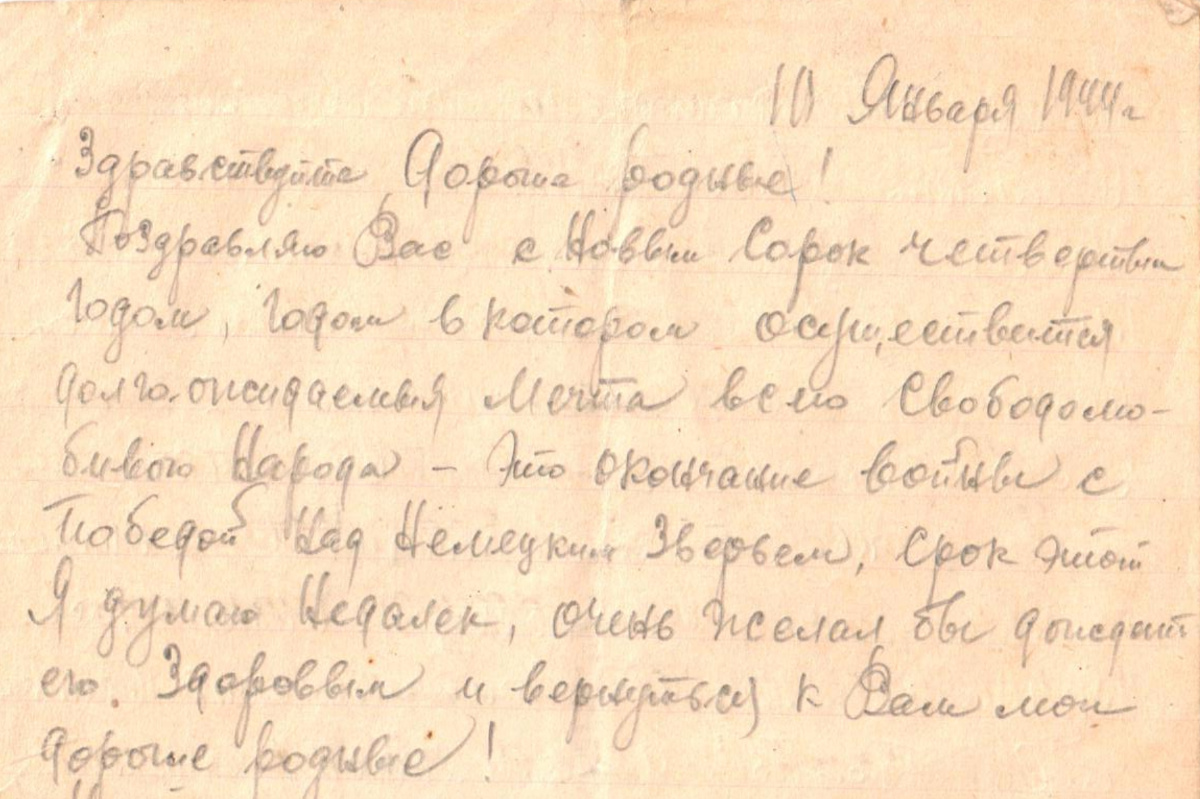 10 Января 1944г
Здравствуйте Дорогие родные!
Поздравляю Вас с Новым Сорок четвертым
Годом, Годом в котором осуществится
долго-ожидаемыя Мечта всего Свободолю-
бивого Народа – это окончание войны с
Победой Над Немецким Зверьем, Срок этот
Я думаю Недалек, очень желал бы дождат
его. Здоровым и вернуться к Вам мои
дорогие родные!